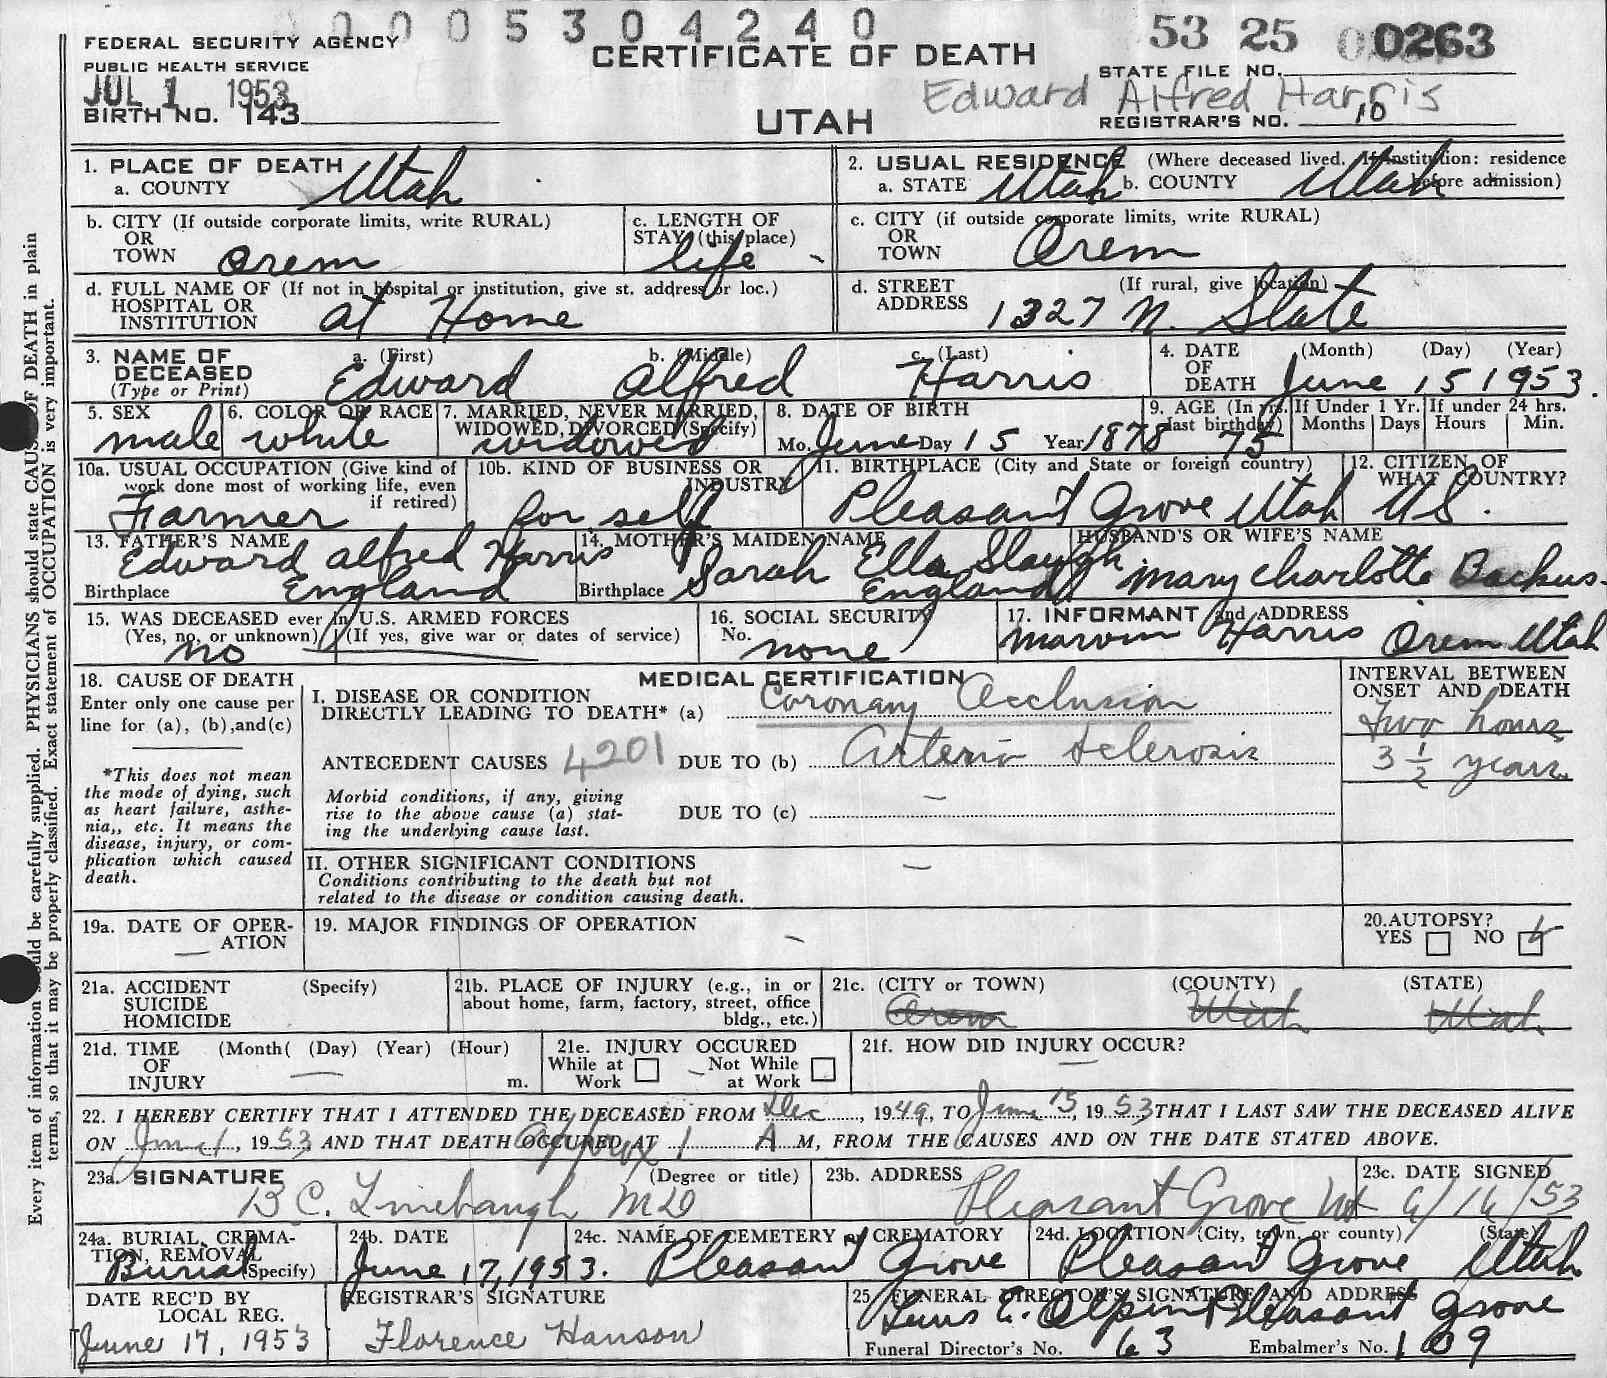 0 0 0 0 5 3 0 4 2 4 0
53 25 0263
FEDERAL SECURITY AGENCY
PUBLIC HEALTH SERVICE
CERTIFICATE OF DEATH
STATE FILE NO.
JUL 1 1953
Edward Alfred Harris
BIRTH NO. 143
UTAH
REGISTRAR'S NO. 10
1. PLACE OF DEATH
a. COUNTY Utah
2. USUAL RESIDENCE (Where deceased lived. If institution: residence before admission)
a. STATE Utah b. COUNTY Utah
b. CITY (If outside corporate limits, write RURAL)
OR
TOWN Orem
c. LENGTH OF
STAY (this place)
life
c. CITY (if outside corporate limits, write RURAL)
OR
TOWN Orem
d. FULL NAME OF (If not in hospital or institution, give st. address or loc.)
HOSPITAL OR
INSTITUTION at Home
d. STREET (If rural, give location)
ADDRESS 1327 N. State
3. NAME OF
DECEASED
(Type or Print)
a. (First) b. (Middle) c. (Last)
Edward Alfred Harris
4. DATE (Month) (Day) (Year)
OF
DEATH June 15 1953.
5. SEX
male
6. COLOR OR RACE
white
7. MARRIED, NEVER MARRIED,
WIDOWED, DIVORCED (Specify)
widowed
8. DATE OF BIRTH
Mo. June Day 15 Year 1878
9. AGE (In yrs. last birthday)
75
If Under 1 Yr.
Months Days
If under 24 hrs.
Hours Min.
10a. USUAL OCCUPATION (Give kind of
work done most of working life, even
if retired)
Farmer
10b. KIND OF BUSINESS OR
INDUSTRY
for self
11. BIRTHPLACE (City and State or foreign country)
Pleasant Grove Utah
12. CITIZEN OF
WHAT COUNTRY?
U.S.
13. FATHER'S NAME
Edward Alfred Harris
Birthplace England
14. MOTHER'S MAIDEN NAME
Sarah Ella Slaugh
Birthplace England
HUSBAND'S OR WIFE'S NAME
Mary Charlotte Backus.
15. WAS DECEASED ever in U.S. ARMED FORCES
(Yes, no, or unknown) (If yes, give war or dates of service)
no
16. SOCIAL SECURITY
No.
none
17. INFORMANT and ADDRESS
Marvin Harris Orem Utah
18. CAUSE OF DEATH
Enter only one cause per
line for (a), (b), and (c)
*This does not mean
the mode of dying, such
as heart failure, asthe-
nia,, etc. It means the
disease, injury, or com-
plication which caused
death.
MEDICAL CERTIFICATION
I. DISEASE OR CONDITION
DIRECTLY LEADING TO DEATH* (a) Coronary Occlusion
ANTECEDENT CAUSES 4201 DUE TO (b) Arterio sclerosis
Morbid conditions, if any, giving
rise to the above cause (a) stat-
ing the underlying cause last.
DUE TO (c) —
INTERVAL BETWEEN
ONSET AND DEATH
Two hours
3 1/2 years
II. OTHER SIGNIFICANT CONDITIONS —
Conditions contributing to the death but not
related to the disease or condition causing death.
19a. DATE OF OPER-
ATION —
19. MAJOR FINDINGS OF OPERATION
—
20. AUTOPSY?
YES NO
21a. ACCIDENT (Specify)
SUICIDE
HOMICIDE
21b. PLACE OF INJURY (e.g., in or
about home, farm, factory, street, office
bldg., etc.)
21c. (CITY or TOWN) (COUNTY) (STATE)
Orem Utah Utah
21d. TIME (Month( (Day) (Year) (Hour)
OF
INJURY — m.
21e. INJURY OCCURED
While at Work Not While at Work
21f. HOW DID INJURY OCCUR?
—
22. I HEREBY CERTIFY THAT I ATTENDED THE DECEASED FROM Dec, 1949, TO June 15, 1953 THAT I LAST SAW THE DECEASED ALIVE
ON June 1, 1953 AND THAT DEATH OCCURED AT approx 1 A M, FROM THE CAUSES AND ON THE DATE STATED ABOVE.
23a. SIGNATURE (Degree or title)
B C. Linebaugh MD
23b. ADDRESS
Pleasant Grove Ut
23c. DATE SIGNED
6/16/53
24a. BURIAL, CREMA-
TION, REMOVAL
(Specify)
Burial
24b. DATE
June 17, 1953.
24c. NAME OF CEMETERY or CREMATORY
Pleasant Grove
24d. LOCATION (City, town, or county) (State)
Pleasant Grove Utah
DATE REC'D BY
LOCAL REG.
June 17, 1953
REGISTRAR'S SIGNATURE
Florence Hanson
25 FUNERAL DIRECTOR'S SIGNATURE AND ADDRESS
E. Olpin Pleasant Grove
Funeral Director's No. 63 Embalmer's No. 109
Every item of information should be carefully supplied. PHYSICIANS should state CAUSE OF DEATH in plain
terms, so that it may be properly classified. Exact statement of OCCUPATION is very important.